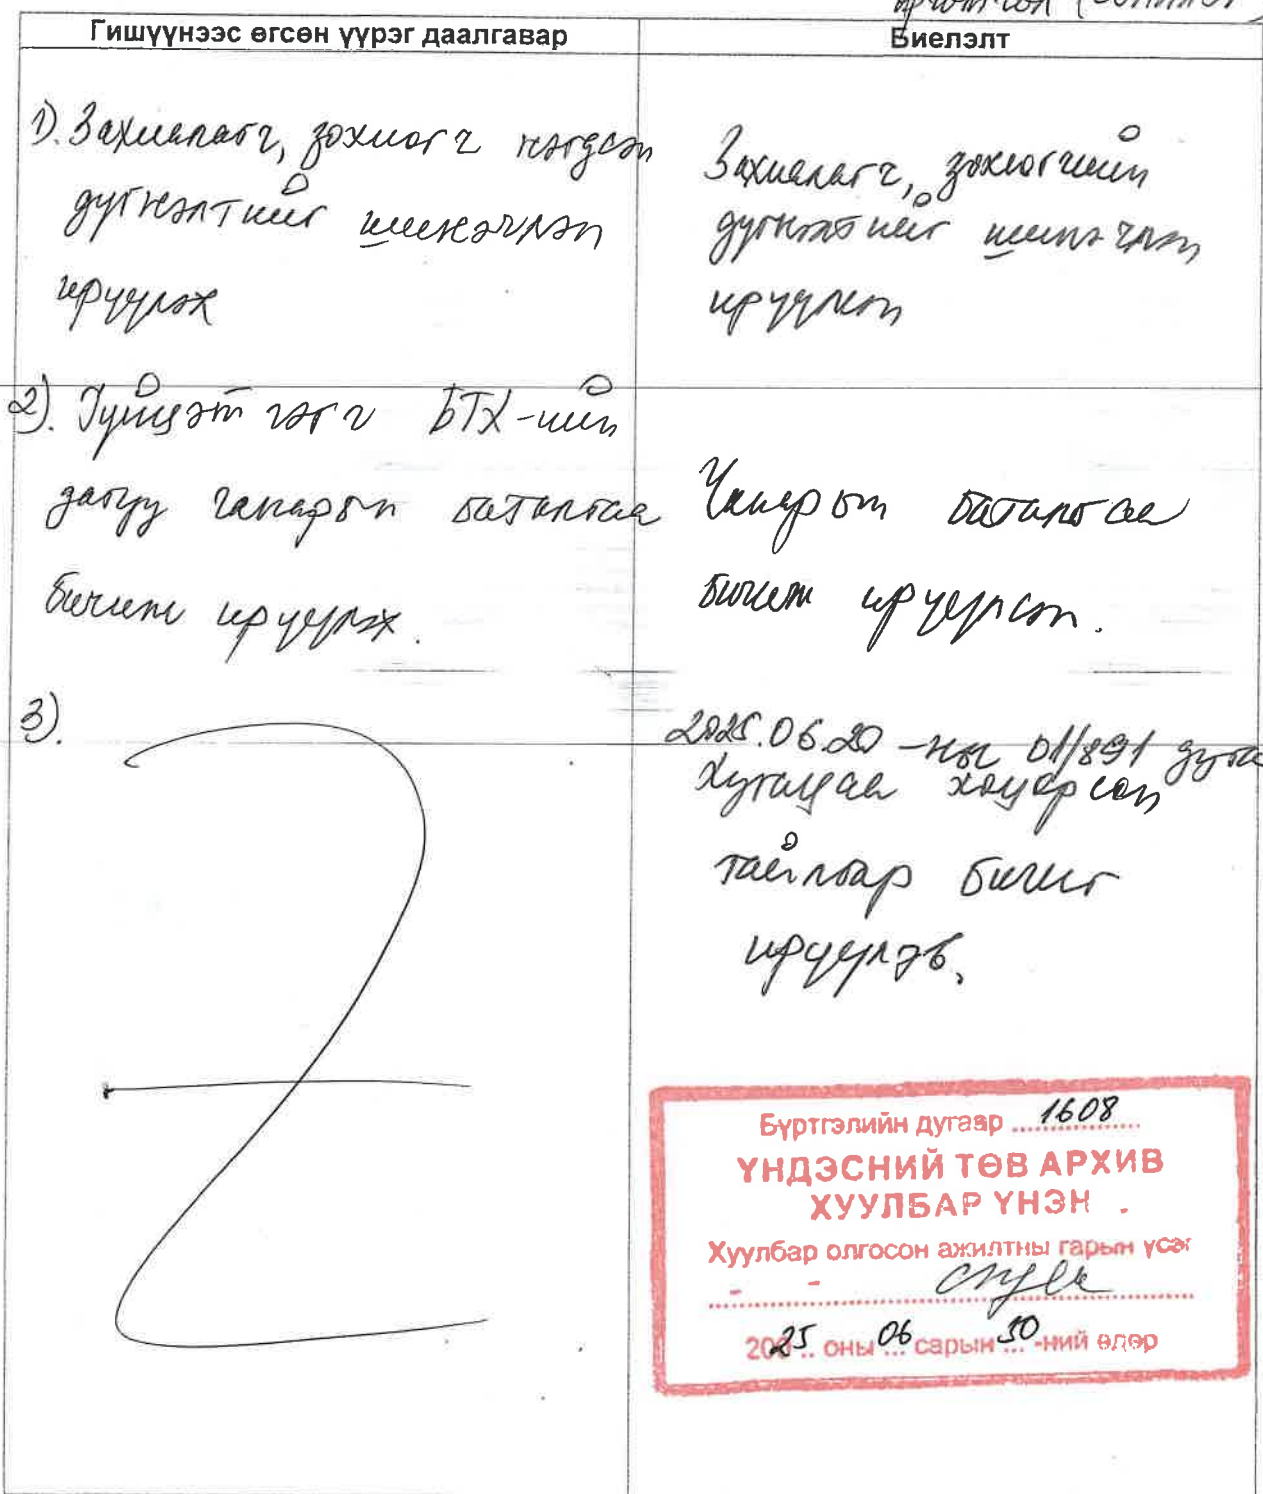 Гишүүнээс өгсөн үүрэг даалгавар
Биелэлт
1). Захиалагч, зохиогч нэгдсэн
дүгнэлтийг шинэчлэн
ирүүлэх
Захиалагч, зохиогчийн
дүгнэлтийг шинэчлэн
ирүүлсэн
2). Гүйцэтгэгч БТХ-ийн
дагуу чанарын баталгаа
бичиж ирүүлэх.
Чанарын баталгаа
бичиж ирүүлсэн.
3).
2025.06.20 -ны 01/891
хугацаа хоцорсон
тайлбар бичиг
ирүүлэв.
Бүртгэлийн дугаар ...1608...
ҮНДЭСНИЙ ТӨВ АРХИВ
ХУУЛБАР ҮНЭН
Хуулбар олгосон ажилтны гарын үсэг
2025.. оны 06 сарын 30 -ний өдөр